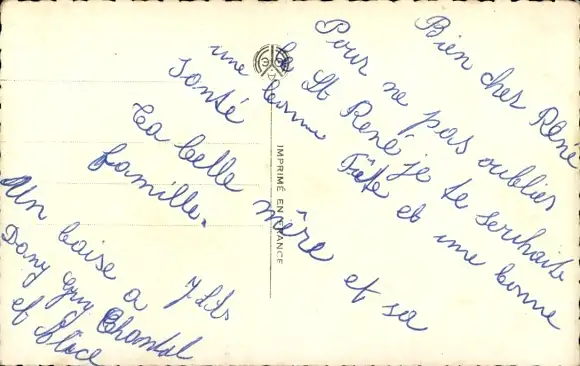 Bien cher René
Pour ne pas oublier
la St René je te souhaite
une bonne Fête et une bonne
Santé
Ta belle mère et sa
famille.
Un baise a
Dany Guy Chantal
et
IMPRIMÉ EN FRANCE